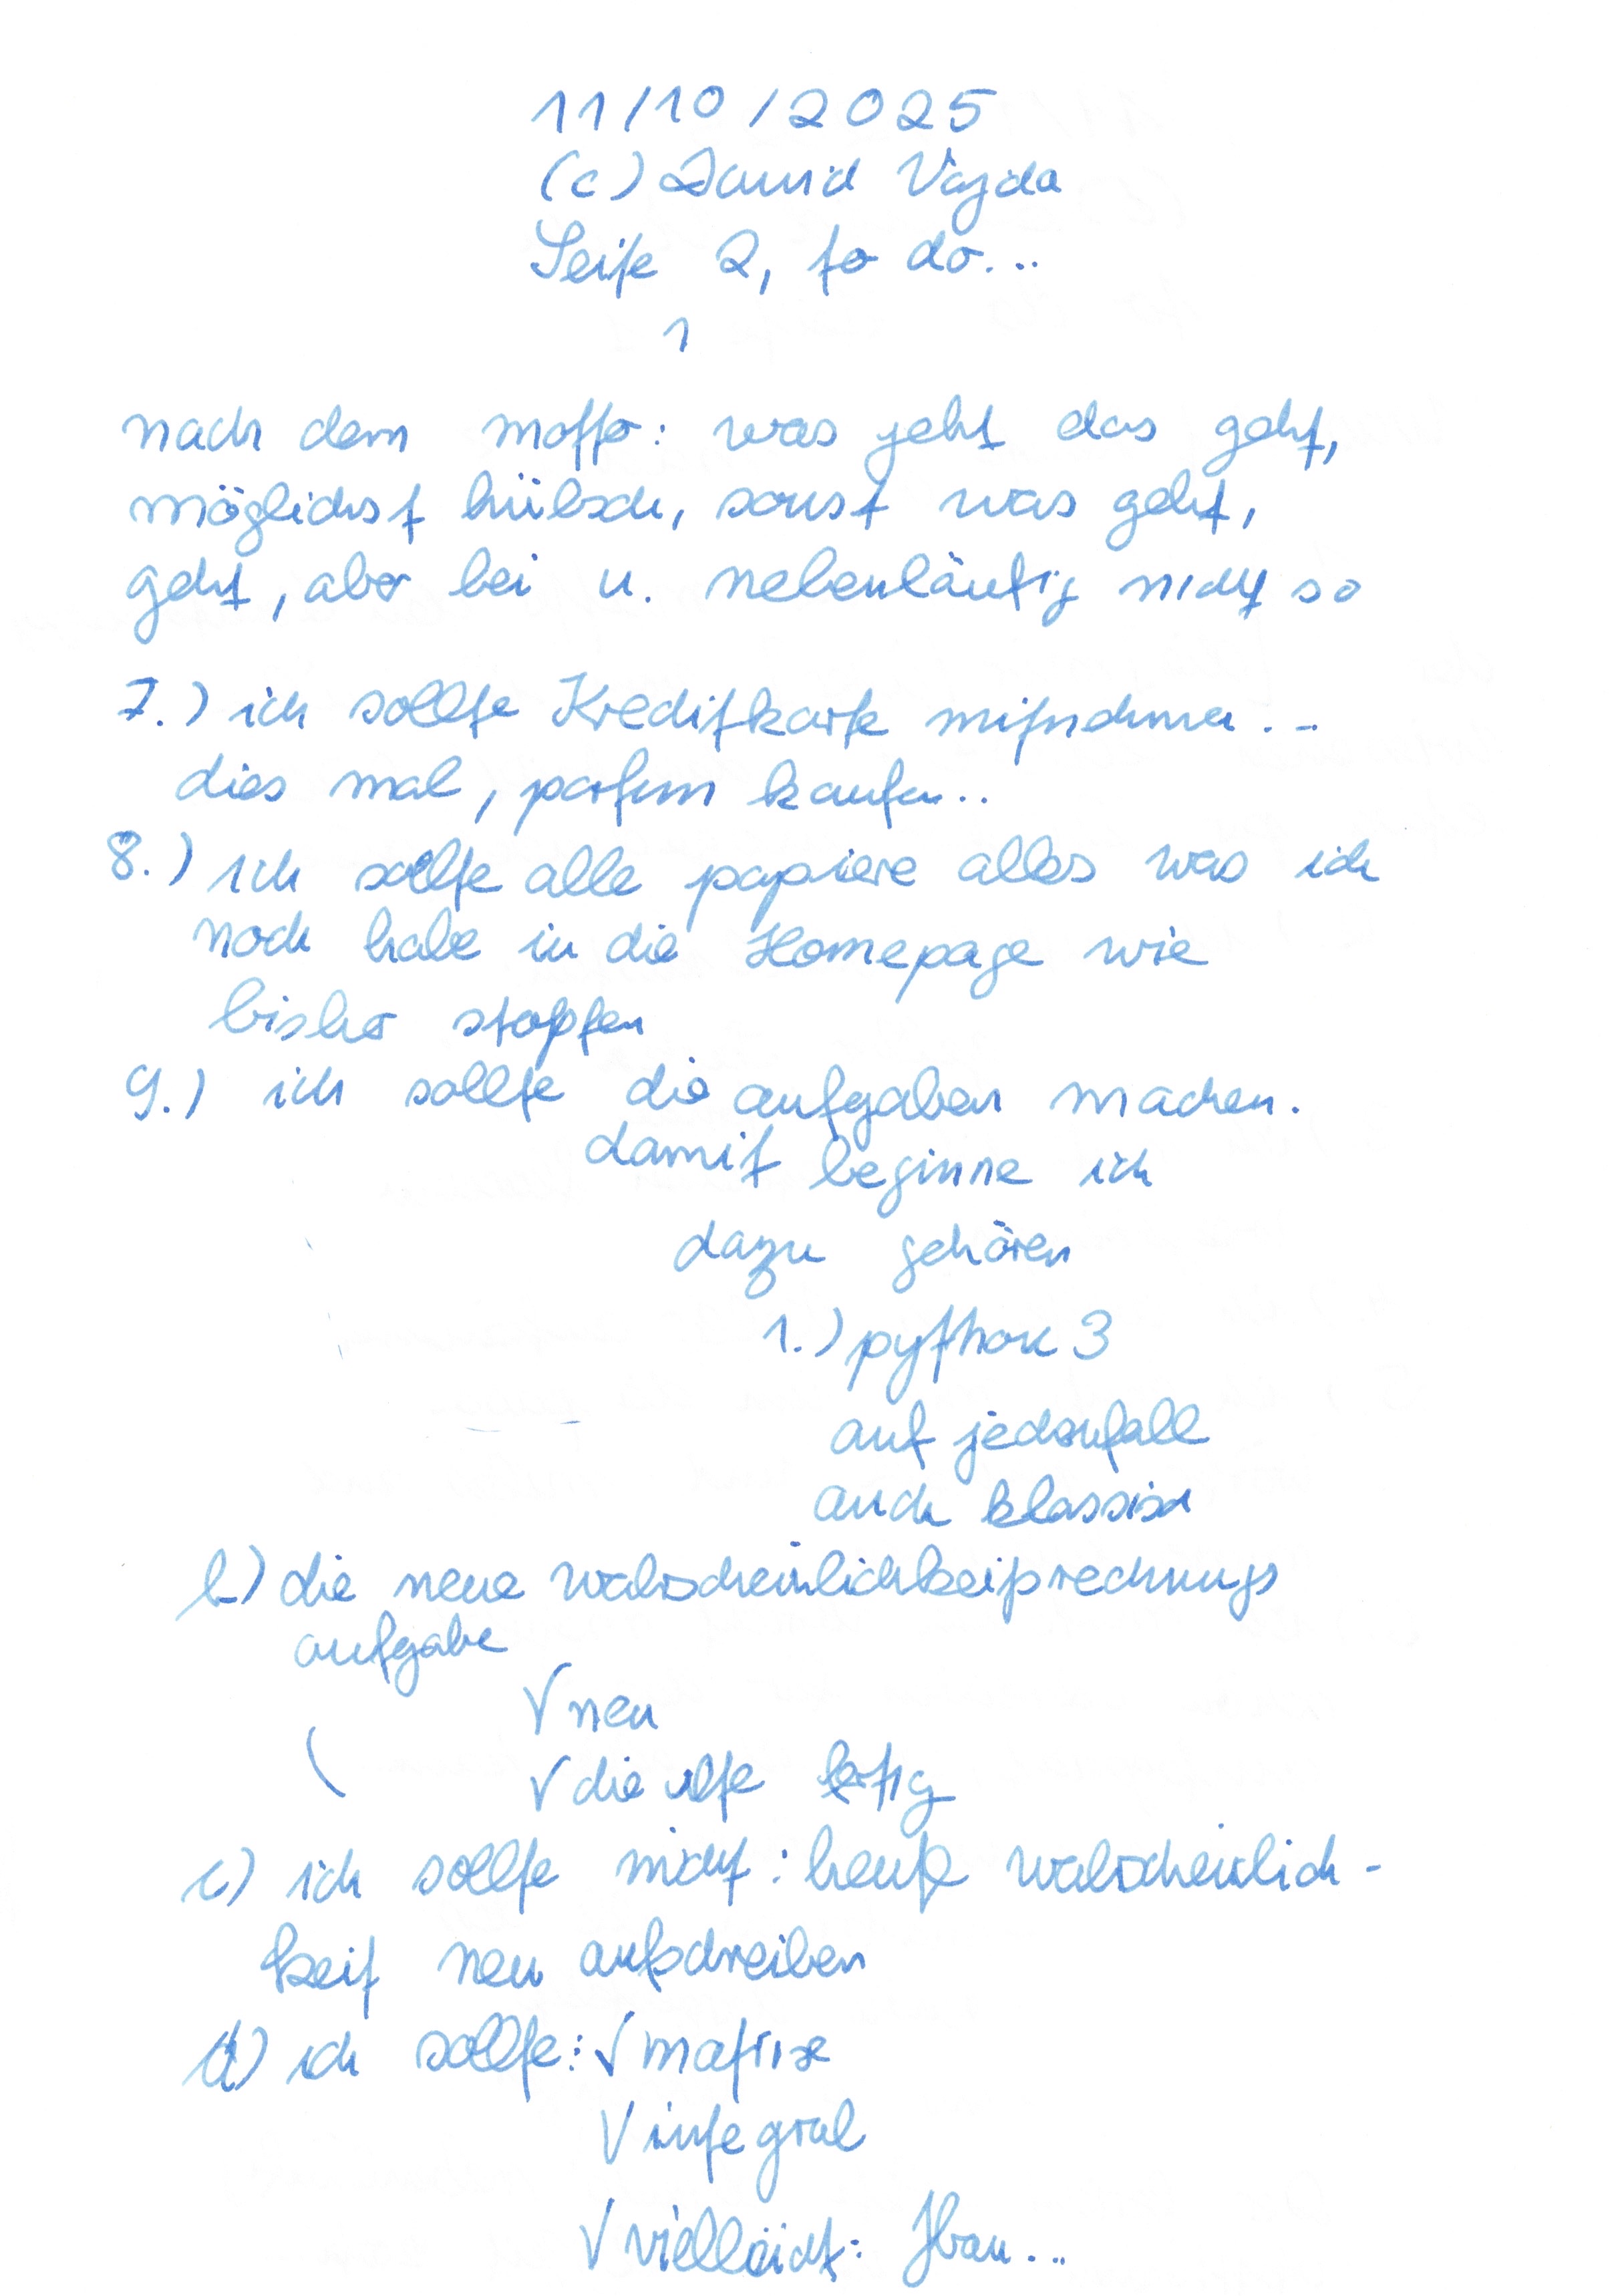 11/10/2025
(c) David Vajda
Seite 2, to do...
1
nach dem motto: was geht das geht,
möglichst hübsch, sonst was geht,
geht, aber bei u. nebenläufig nicht so
7.) ich sollte Kreditkarte mitnehmen...
dies mal, parfum kaufen..
8.) ich sollte alle papiere alles was ich
noch habe in die Homepage wie
bisher stopfen
9.) ich sollte die aufgaben machen.
damit beginne ich
dazu gehören
1.) python 3
auf jedenfall
auch klassisch
b) die neue wahrscheinlichkeitsrechnungs
aufgabe
√ neu
√ die alte
c) ich sollte nicht: heute wahrscheinlich-
keit neu aufschreiben
d) ich sollte: √ matrix
√ integral
√ vielleicht: